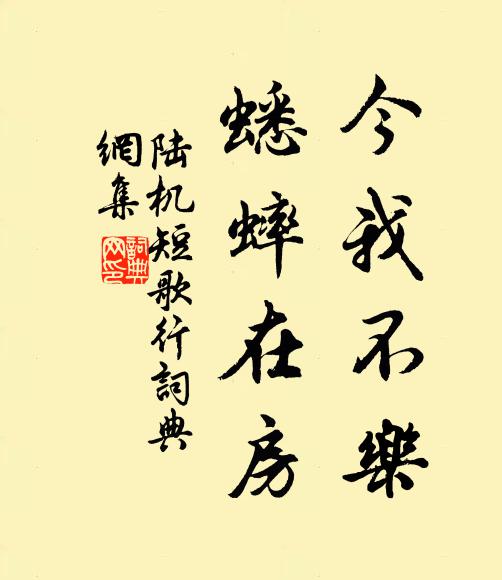 今我不樂
蟋蟀在房
陆机短歌行詞典
網集
詞典
网印